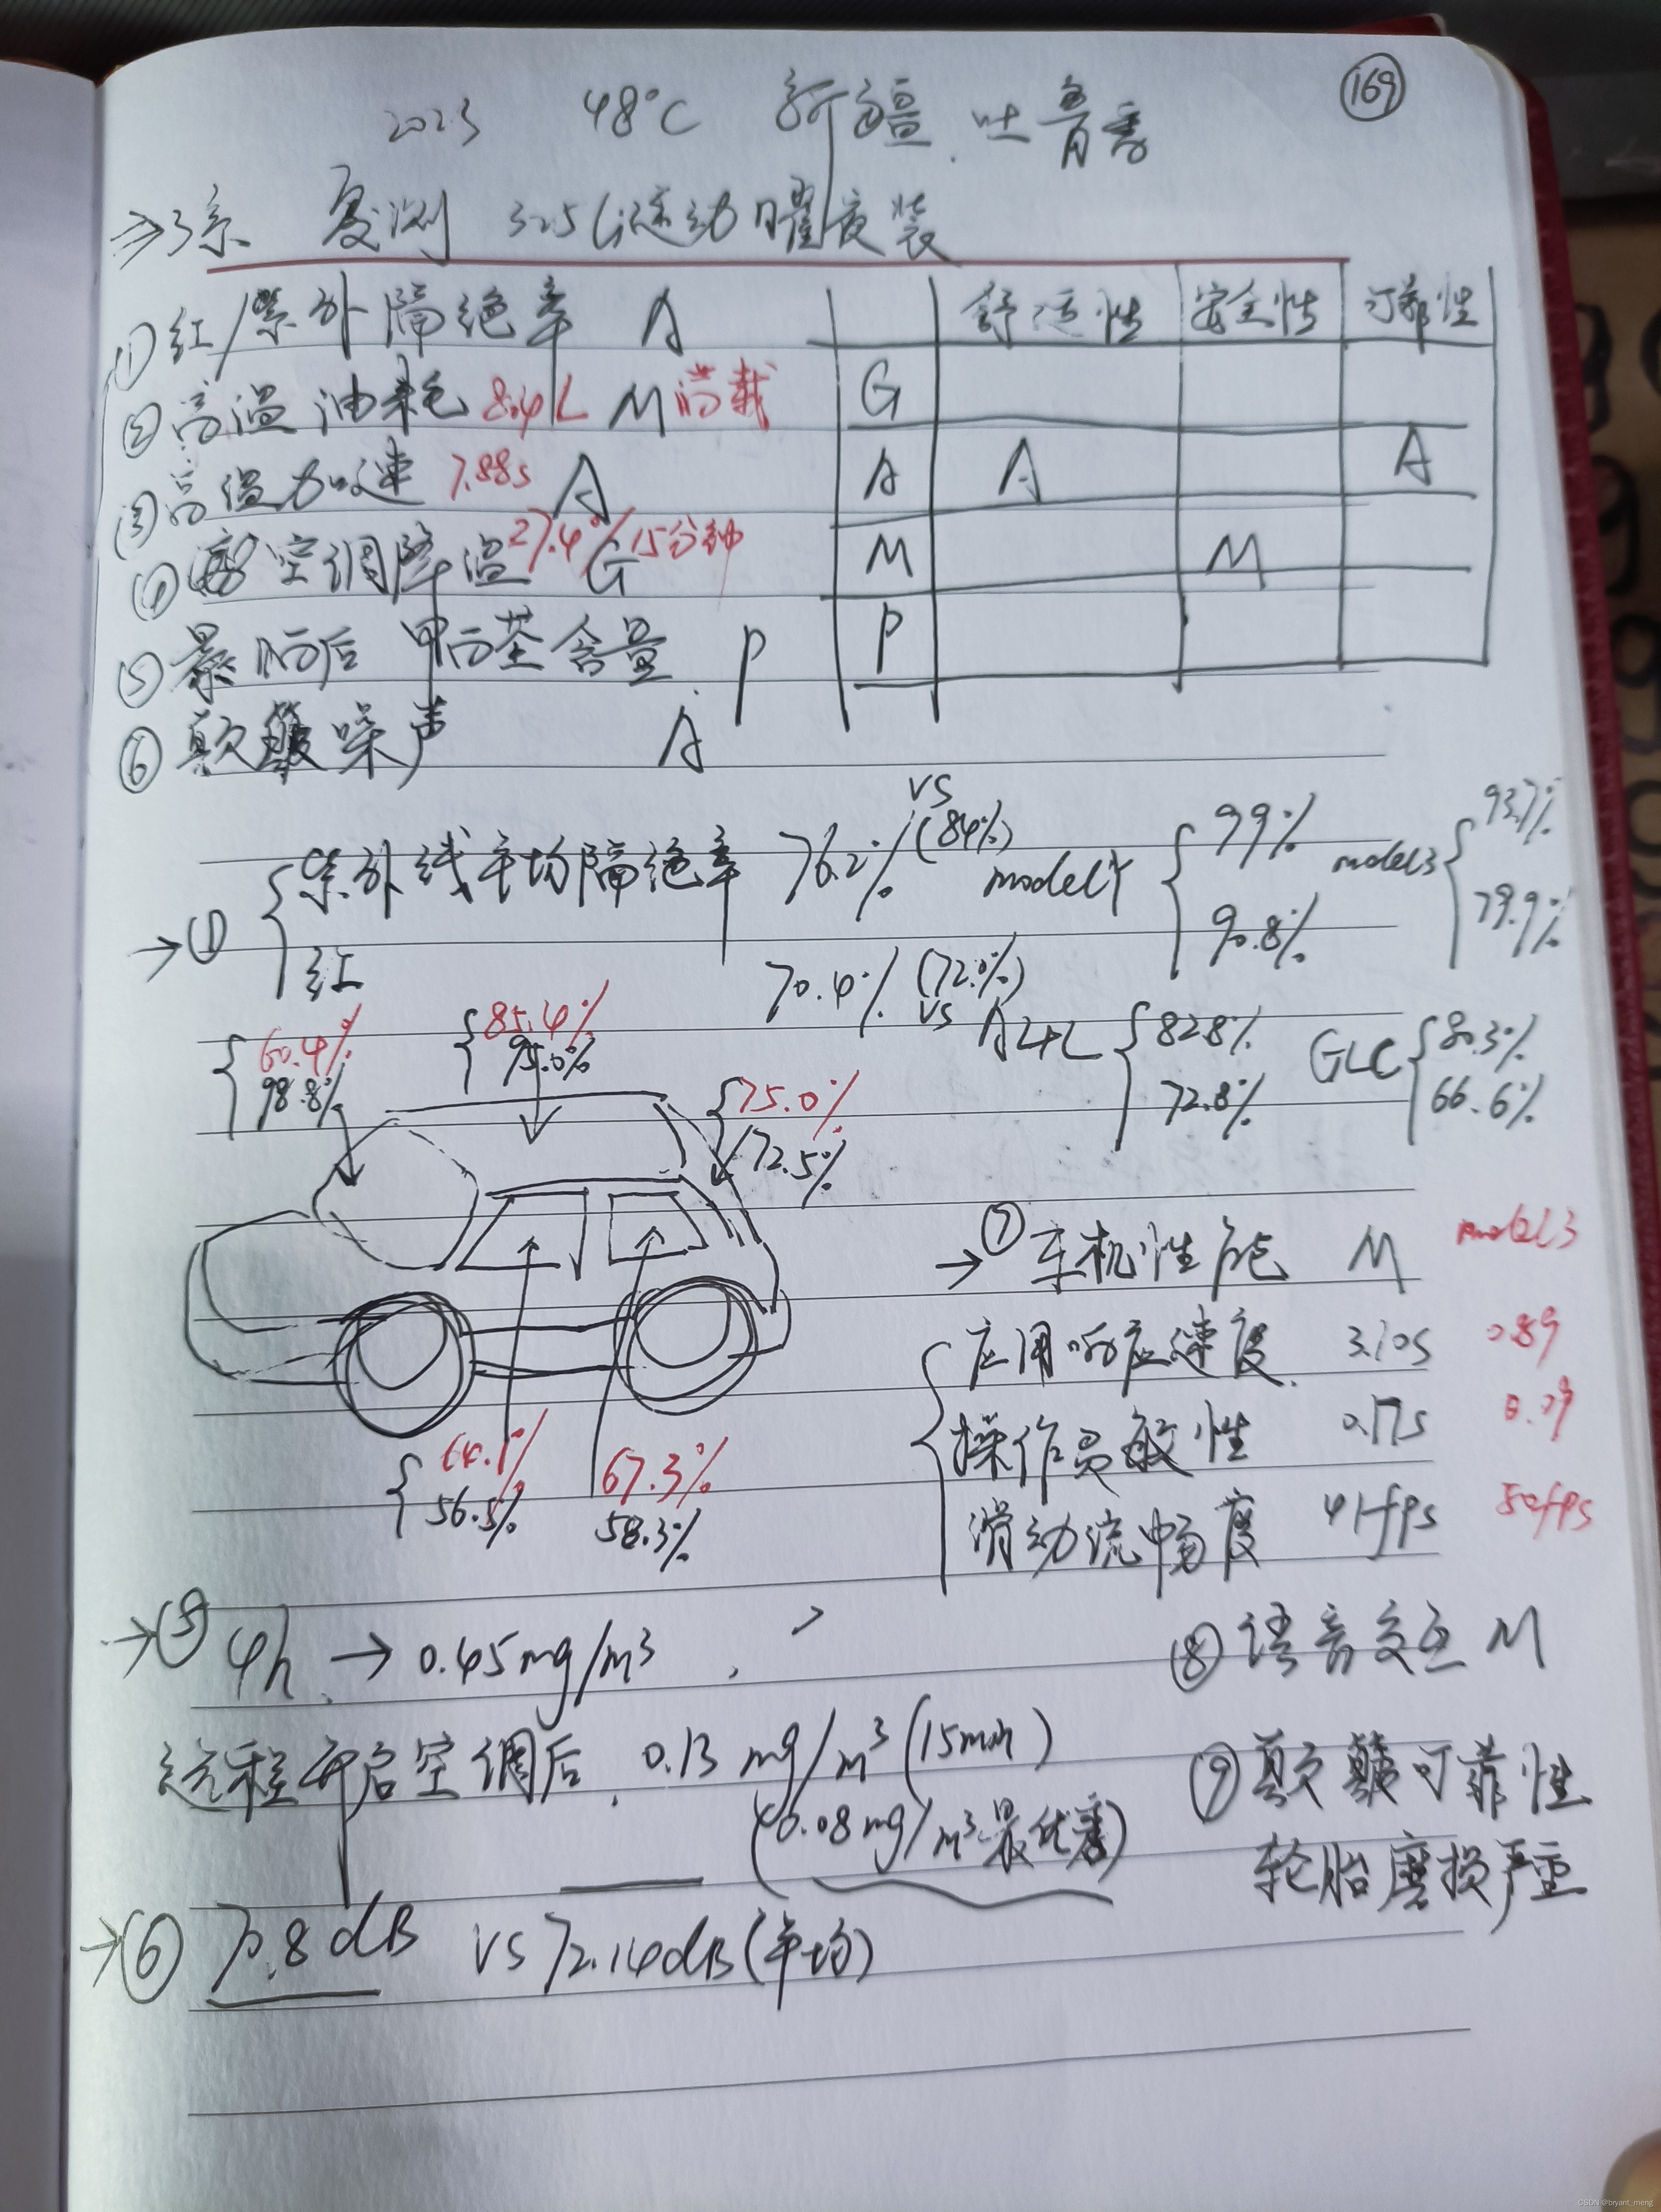 169
2023 48°C 新疆.吐鲁番
⇒3系 复测 325Li运动曜夜装
①红/紫外隔绝率 A
②高温油耗 8.4L M 满载
③高温加速 7.88s A
④空调降温 27.4°/15分钟 G
⑤暴晒后 甲醛含量. P
⑥颠簸噪声 A
舒适性 安全性 可靠性
G
A A A
M M
P
→① 紫外线平均隔绝率 76.2% vs (84%)
红 70.4% vs (72.0%)
modelY 99% 90.8%
model3 93.7% 79.9%
A4L 82.8% 72.8%
GLC 80.3% 66.6%
60.4%
98.8%
85.4%
95.0%
75.0%
72.5%
64.1%
56.5%
67.3%
58.3%
→⑦车机性能 M model3
应用响应速度. 3.10s 0.89
操作灵敏性 0.17s 0.09
滑动流畅度 41fps 50fps
→⑤ 4h. → 0.45mg/m³
远程开启空调后. 0.13 mg/m³(15min)
(0.08mg/m³最优秀)
→⑥ 70.8dB vs 72.14dB(平均)
⑧语音交互 M
⑨颠簸可靠性
轮胎磨损严重
CSDN @bryant_meng